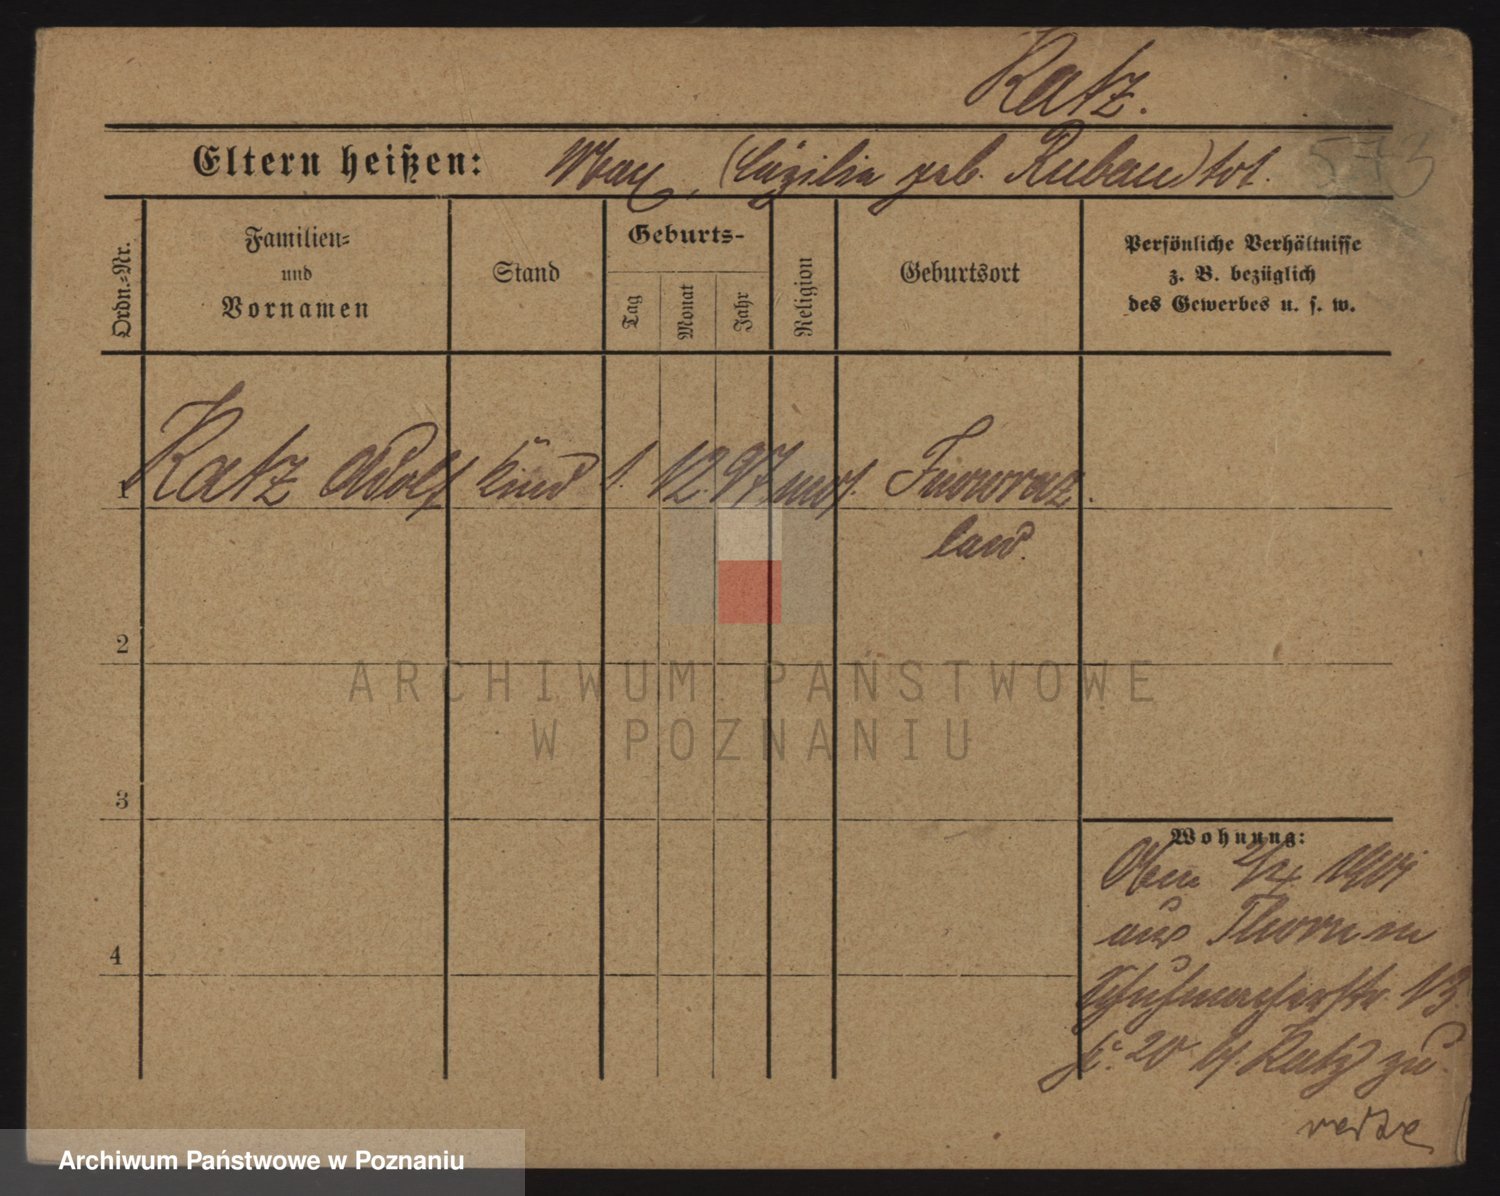 Katz.
573
Eltern heißen: Max, (Cäzilie geb. Kuban) tot.
Ordn.-Nr.
Familien-
und
Vornamen
Stand
Geburts-
Tag
Monat
Jahr
Religion
Geburtsort
Persönliche Verhältnisse
z. B. bezüglich
des Gewerbes u. s. w.
1 Katz Adolf Kind 1. 12. 97 mos. Inowraz
law.
2
3
4
ARCHIWUM PAŃSTWOWE
W POZNANIU
Wohnung:
1901
aus Thorn
Schuhmacherstr. 13
20 Katz zu.
Archiwum Państwowe w Poznaniu